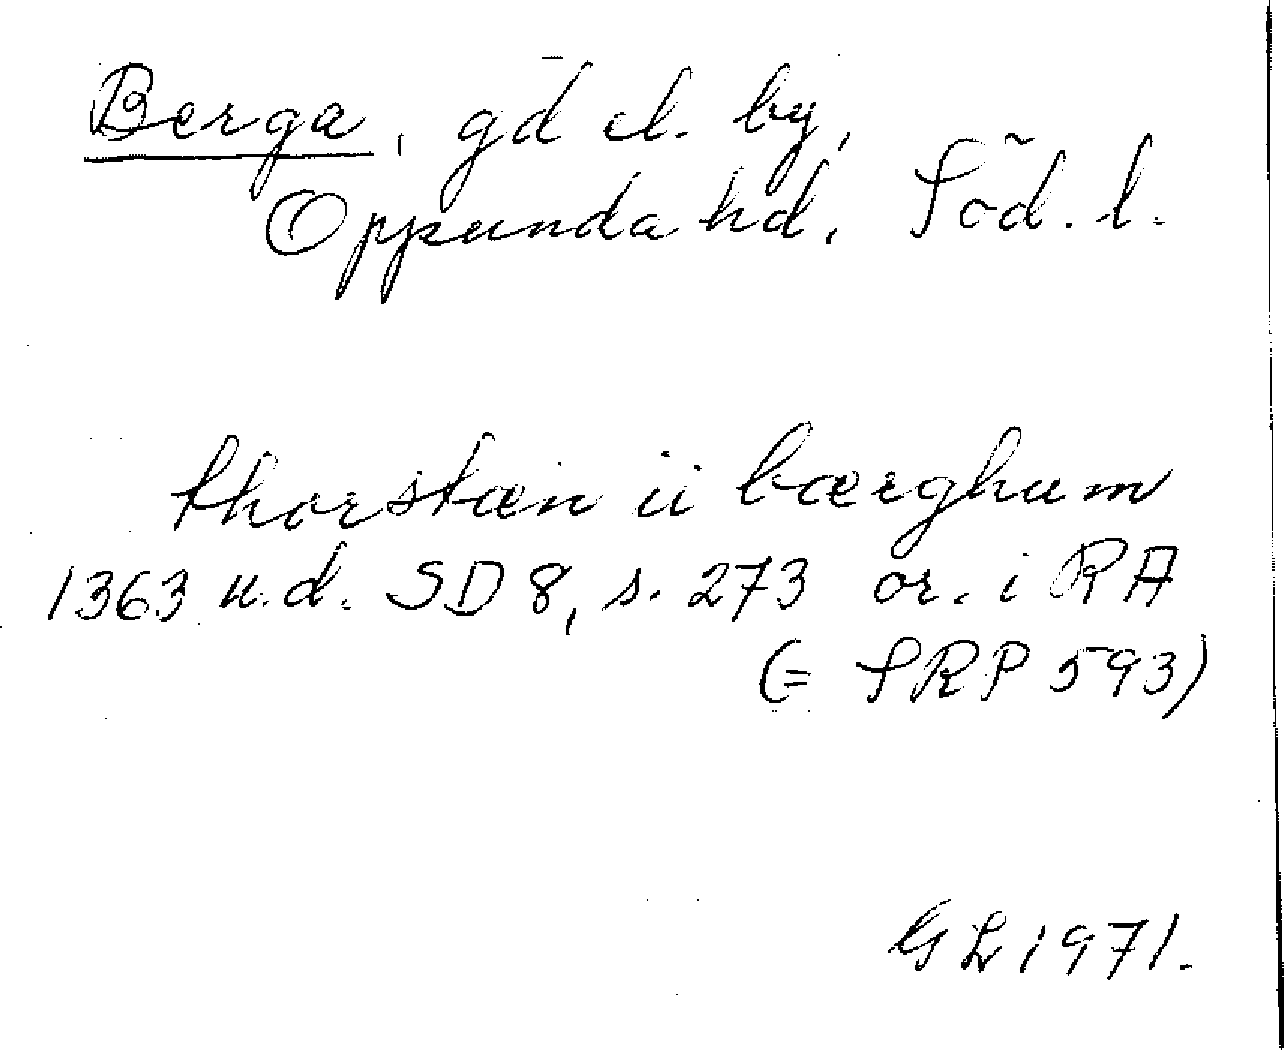 Berga, gd el. by,
Oppunda hd, Söd. l.
thorstæn ii bærghum
1363 u.d. SD 8, s. 273 or. i RA
(= SRP 593)
GL 1971.